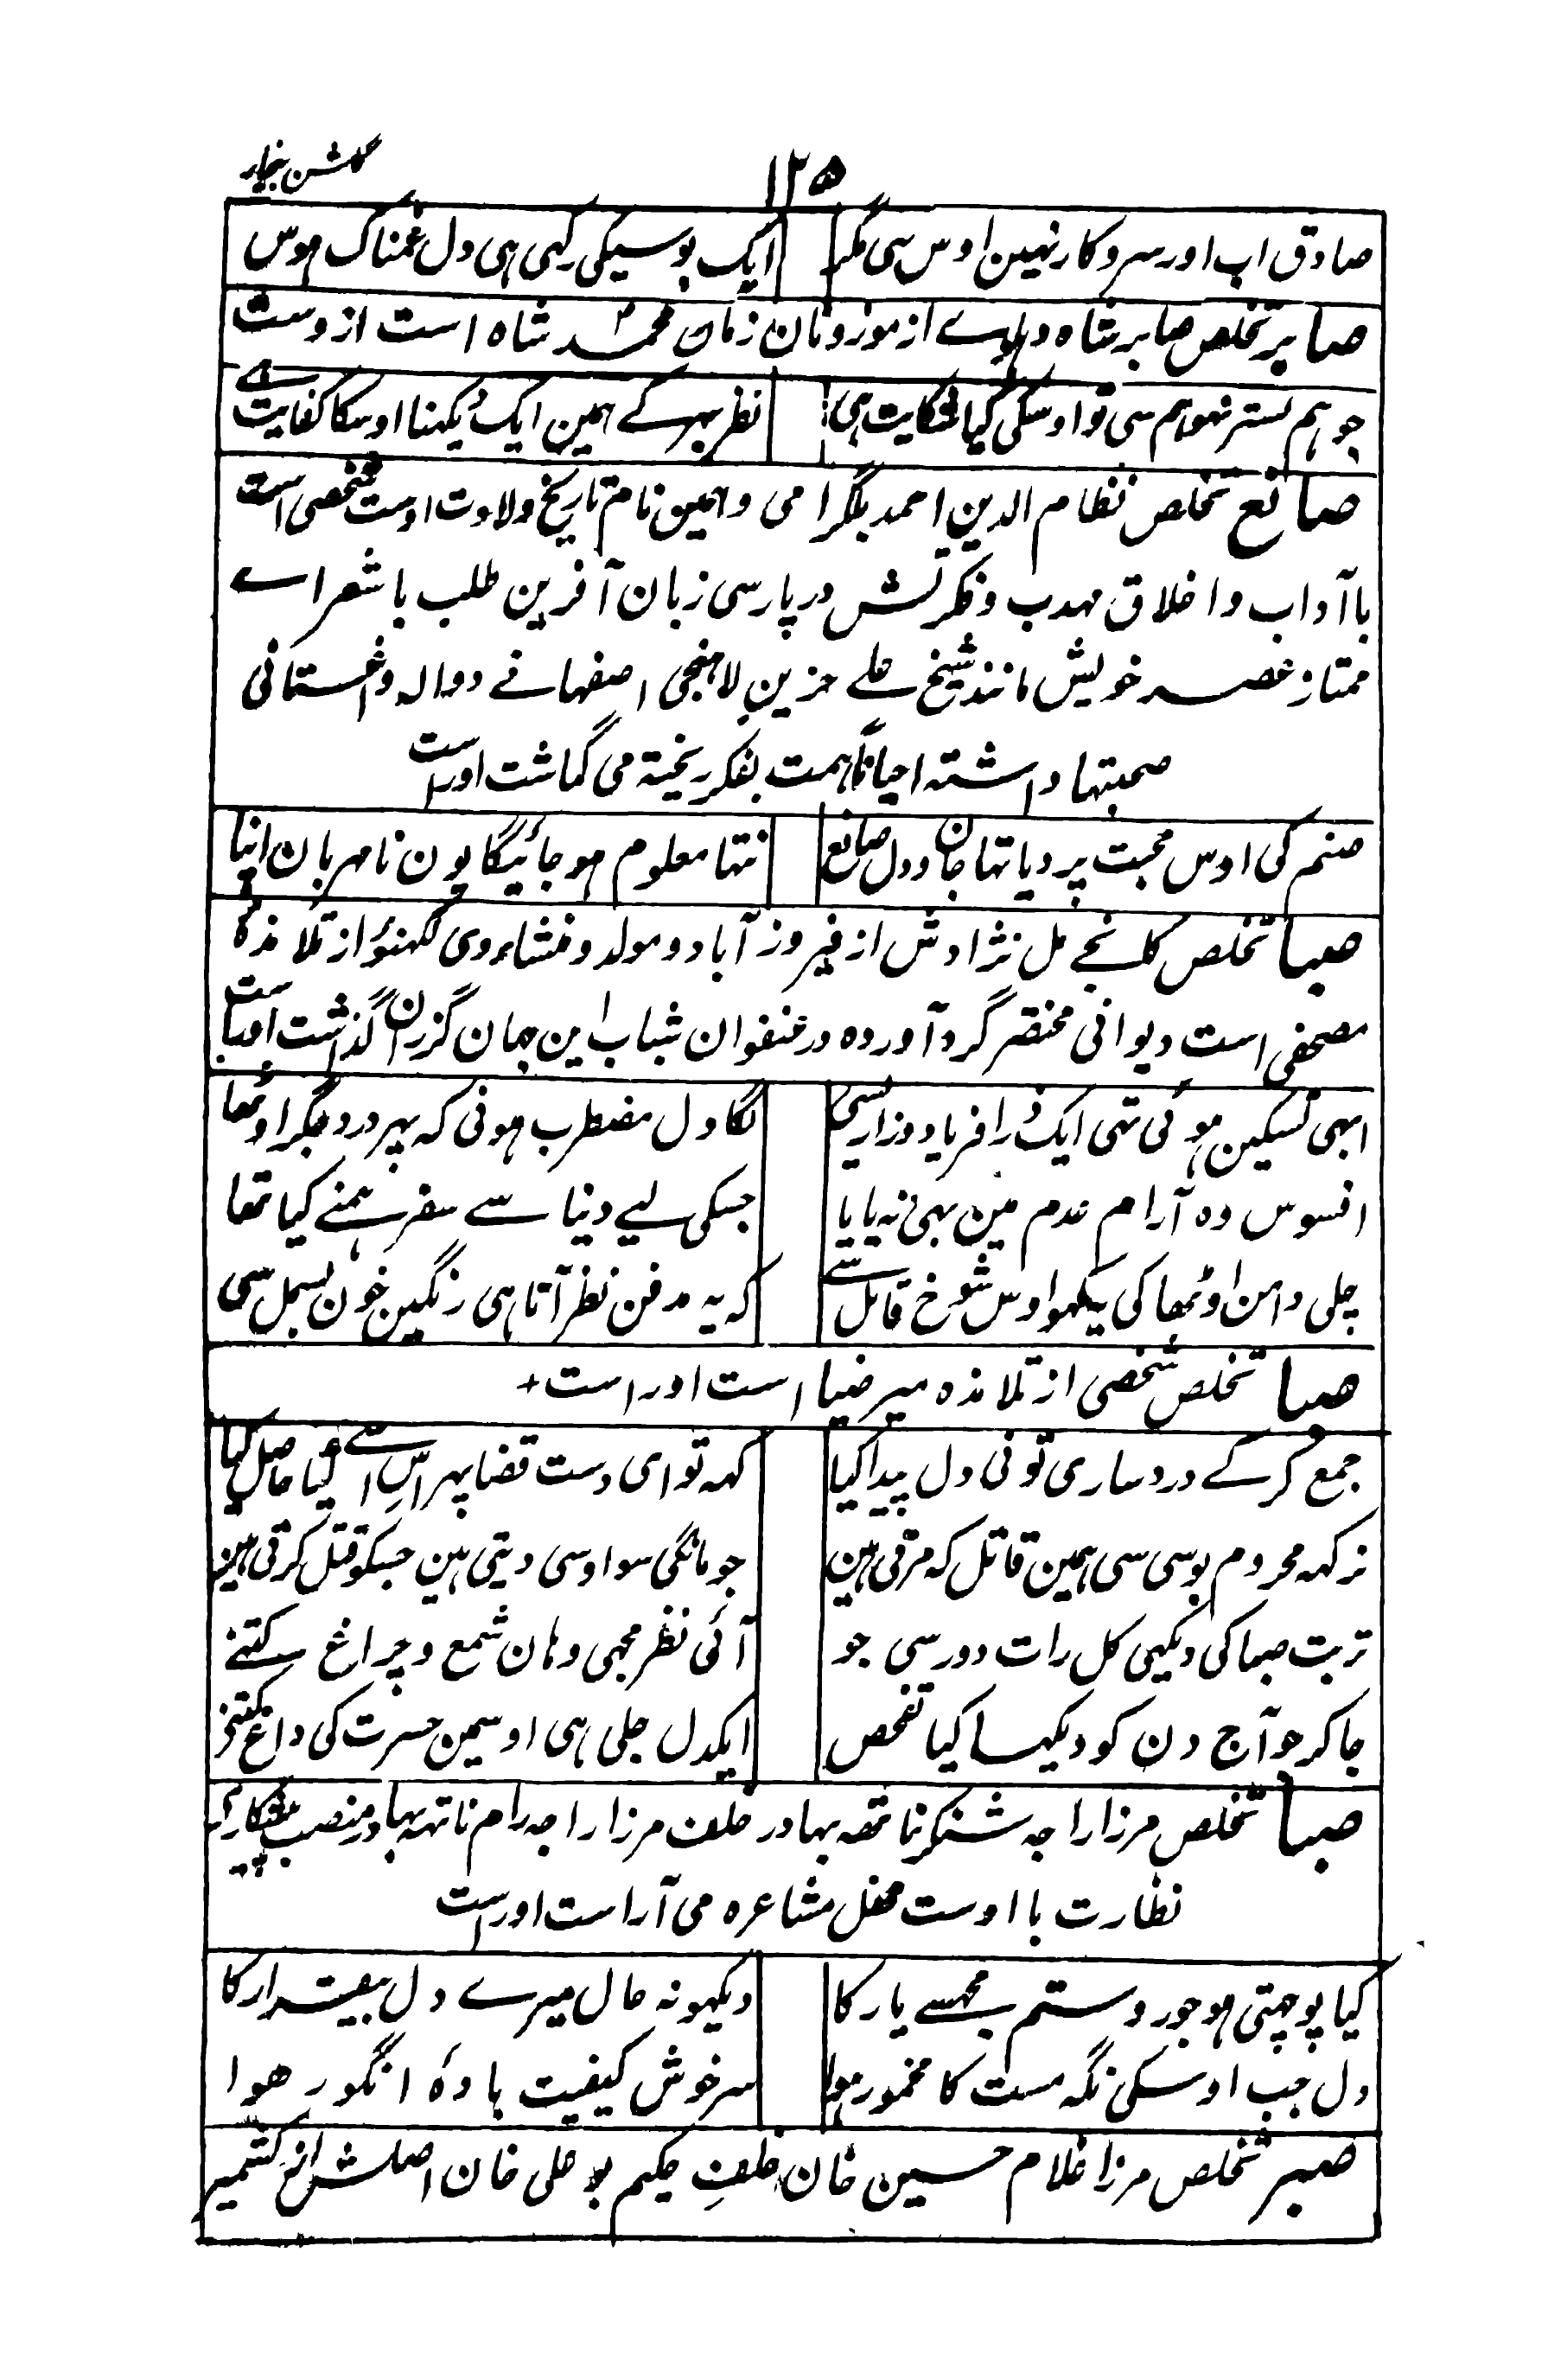 ۱۲۵
گلشن بیخار
صادق اب اور سروکار نہین اوس سی مگر ایک بوسیکی رکہی ہی دل غمناک ہوس
صابر تخلص صابر شاہ دہلوے از موزونان زمان محمد شاہ است ازوست
جو ہم بستر نہو ہم سی تو اوسکی کیا شکایت ہی نظر بہر کے ہمین ایک دیکہنا اوسکا کفایت ہے
صانع تخلص نظام الدین احمد بلگرامی و ہمین نام تاریخ ولادت اوست شخصی است
با آداب و اخلاق مہذب و فکرتش در پارسی زبان آفرین طلب با شعراے
ممتاز عصر خویش مانند شیخ علے حزین لاہیجی اصفہانے و واله داغستانی
صحبتہا داشتہ احیاناً ہمت بفکر ریختہ می گماشت اوراست
صنم کی اوس محبت پر دیا تہا جان و دل صانع نتہا معلوم ہو جائیگا یون نامہربان اپنا
صبا تخلص کانجے مل نژادش از فیروز آباد و مولد و منشاء وی لکہنؤ از تلامذہ
مصحفی است دیوانی مختصر گرد آوردہ در عنفوان شباب این جہان گزران گذاشت اوراست
ابہی تسکین ہوئی تہی ایک ذرا فریاد و زاری سی لگا دل مضطرب ہونی کہ پہر درد جگر اوٹہا
افسوس وہ آرام عدم مین بہی نہ پایا جسکی لیے دنیا سے سفر ہمنے کیا تھا
چلی دامن اوٹھا کی یہ کہو اوس شوخ قاتل سے کہ یہ مدفن نظر آتا ہی رنگین خون بسمل سی
صبا تخلص شخصی از تلامذہ میر ضیا است اوراست +
جمع کر کے درد ساری تو نی دل پیدا کیا کہہ تو ای دست قضا پہر اس سے کیا حاصل کیا
نرکہہ محروم بوسی سی ہمین قاتل کہ مرتی ہین جو مانگی سو اوسی دیتی ہین جسکو قتل کرتی ہین
تربت صبا کی دیکہی کل رات دور سی جو آئی نظر مجہی وہان شمع و چراغ کتنے
جا کر جو آج دن کو دیکہا کیا تفحص ایکدل جلی ہی اوسمین حسرت کی داغ کتنے
صبا تخلص مرزا راجہ شنکر ناتھہ بہادر خلف مرزا راجہ رام ناتہہ بہادر منصب پیشکاری
نظارت با اوست محفل مشاعرہ می آراست اوراست
کیا پوچہتی ہو جور و ستم مجہسے یار کا دیکہو نہ حال میرے دل بیقرار کا
دل جب اوسکی نگہ مست کا مخمور ہوا سرخوش کیفیت بادۂ انگور ہوا
صبر تخلص مرزا غلام حسین خان خلف حکیم بو علی خان اصلش از کشمیر